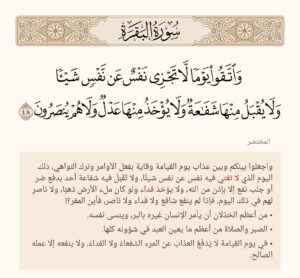 سُورَةُ البَقَرَةِ
وَاتَّقُوا يَوْمًا لَّا تَجْزِي نَفْسٌ عَن نَّفْسٍ شَيْئًا
وَلَا يُقْبَلُ مِنْهَا شَفَاعَةٌ وَلَا يُؤْخَذُ مِنْهَا عَدْلٌ وَلَا هُمْ يُنصَرُونَ ٤٨
المختصر
واجعلوا بينكم وبين عذاب يوم القيامة وقاية بفعل الأوامر وترك النواهي، ذلك
اليوم الذي لا تغني فيه نفس عن نفس شيئًا، ولا تُقبَل فيه شفاعة أحد بدفع ضر
أو جلب نفع إلا بإذن من الله، ولا يؤخذ فداء ولو كان ملء الأرض ذهبًا، ولا ناصر
لهم في ذلك اليوم، فإذا لم ينفع شافع ولا فداء ولا ناصر، فأين المفر؟!
• من أعظم الخذلان أن يأمر الإنسان غيره بالبر، وينسى نفسه.
• الصبر والصلاة من أعظم ما يعين العبد في شؤونه كلها.
• في يوم القيامة لا يَدفَعُ العذابَ عن المرء الشفعاءُ ولا الفداءُ، ولا ينفعه إلا عمله
الصالح.